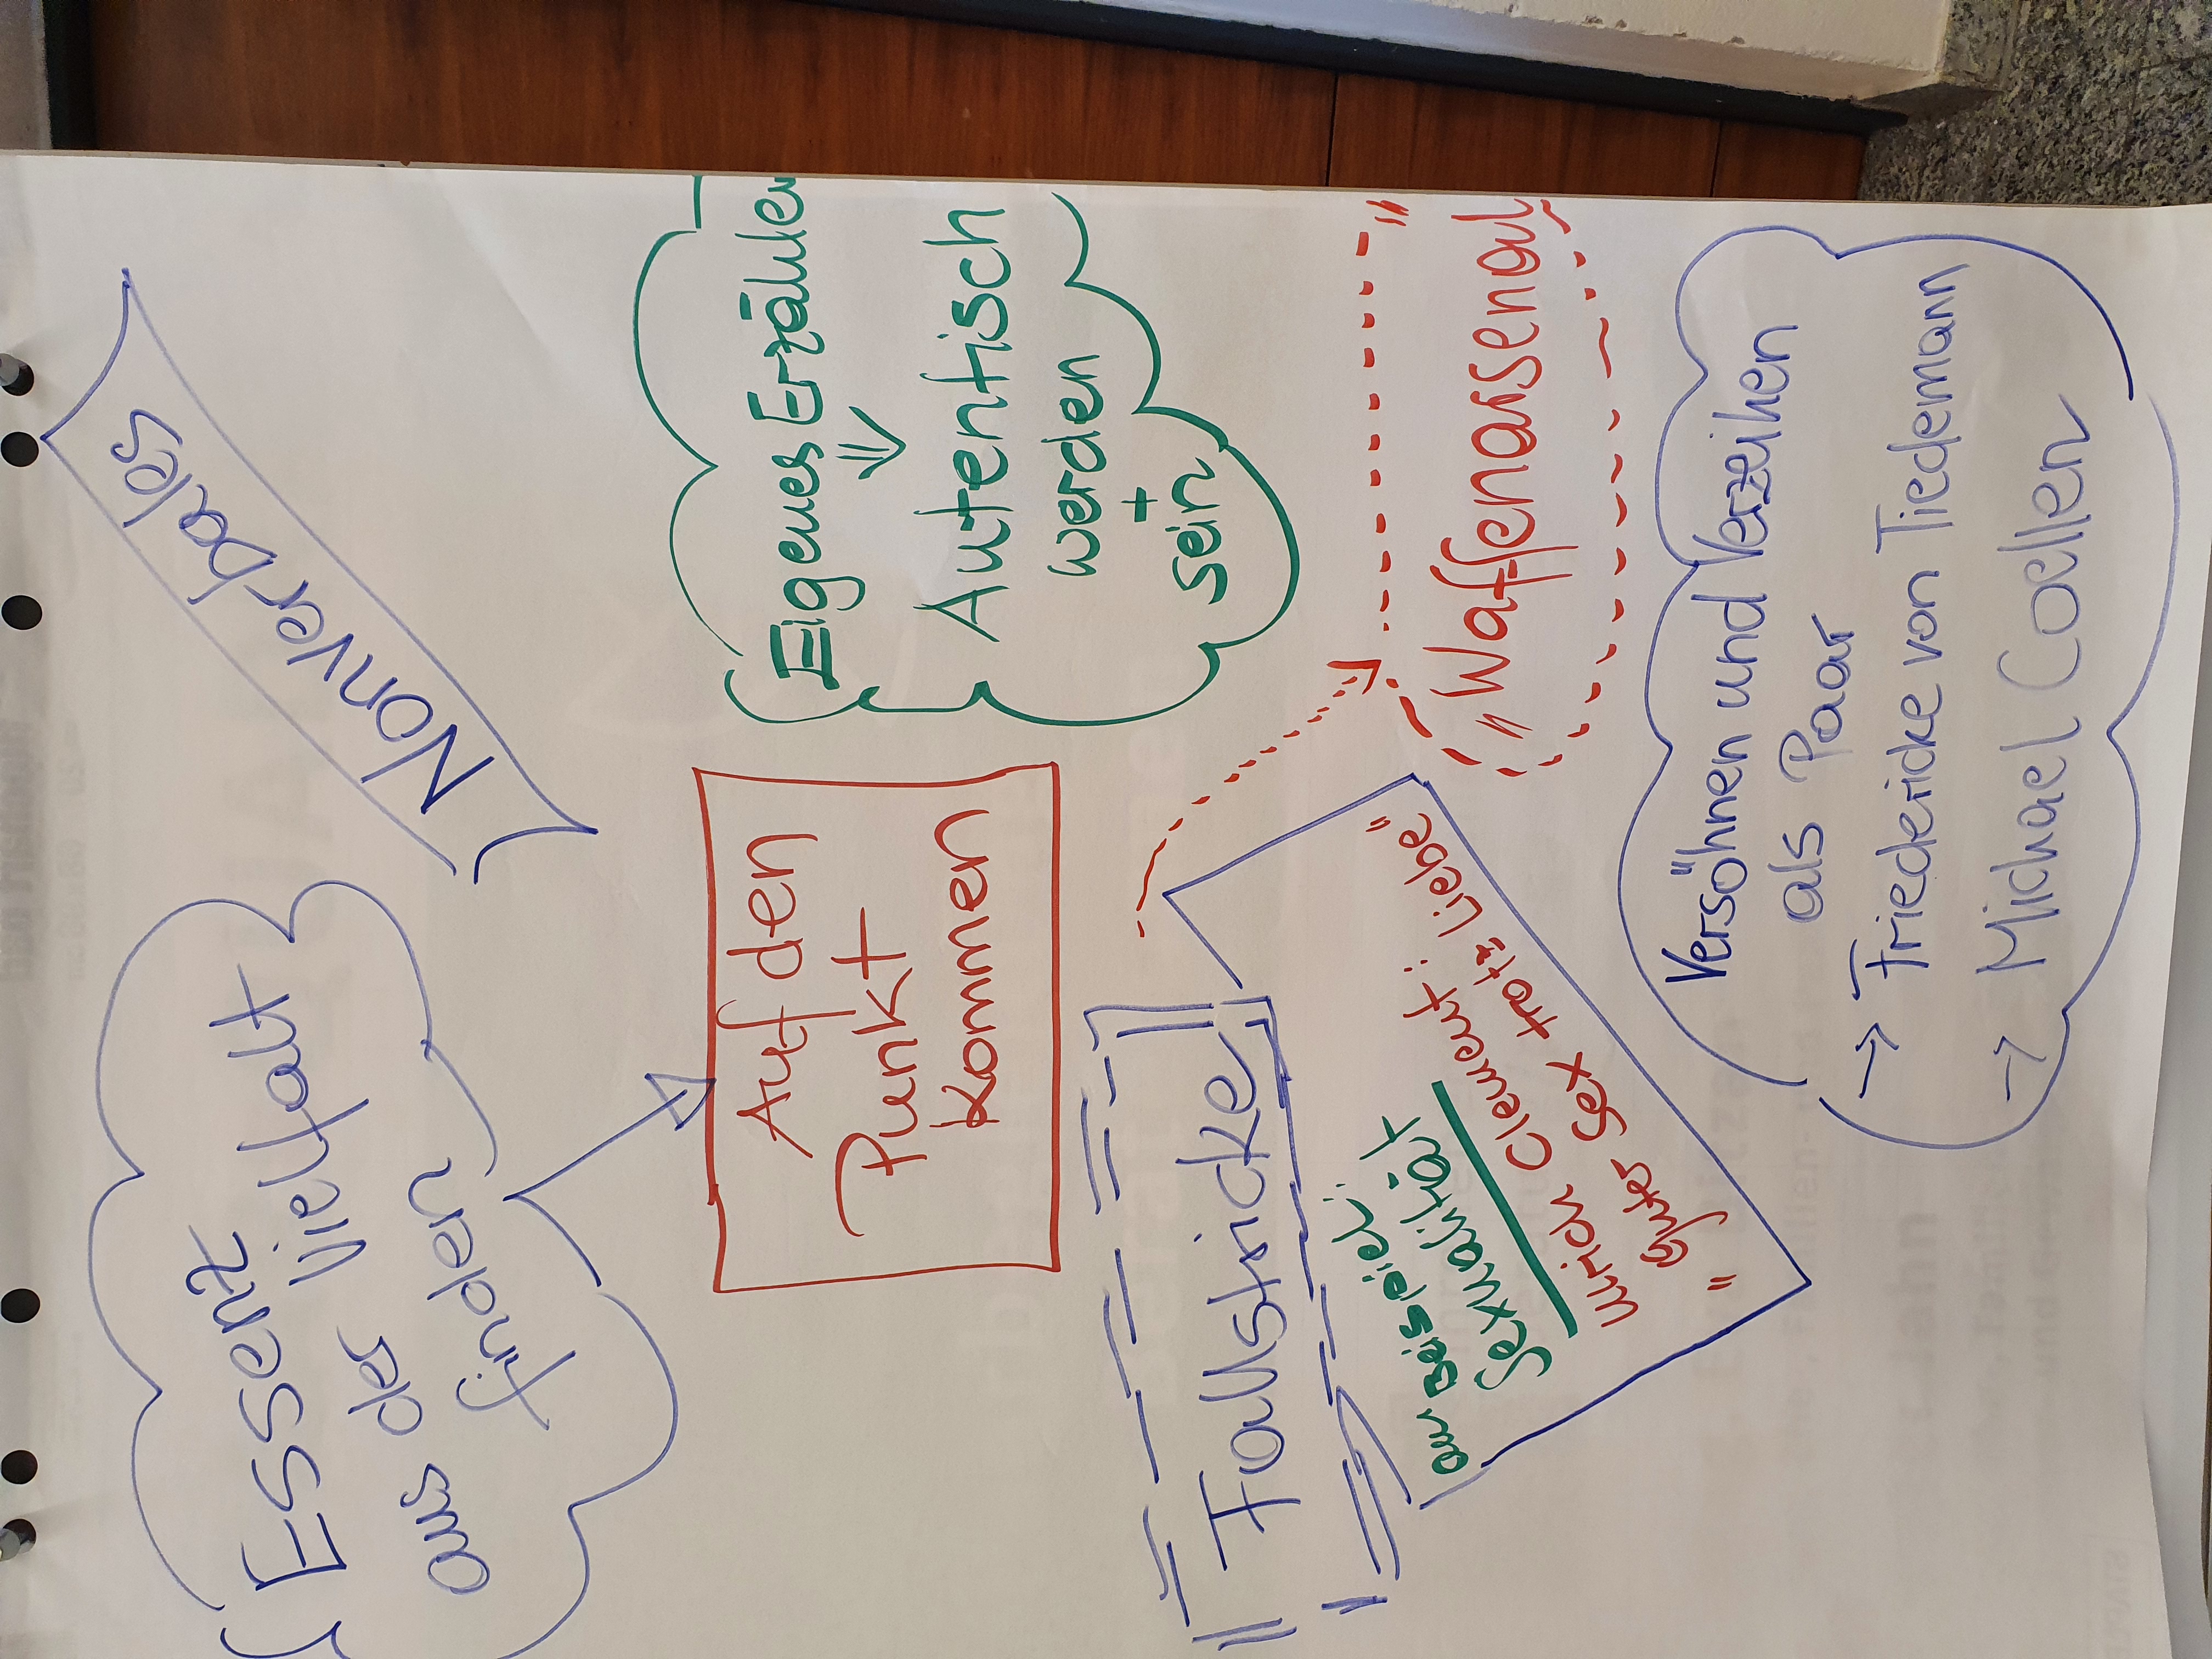 Essenz
aus der Vielfalt
finden
Nonverbales
Auf den
Punkt
kommen
Eigenes Erzählen
⇓
Autentisch
werden
+
sein
Fallstricke
"Waffenarsenal"
am Beispiel:
Sexualität
Ulrich Clement:
"Guter Sex trotz Liebe"
Versöhnen und Verzeihen
als Paar
→ Friedericke von Tiedemann
→ Michael Coellen